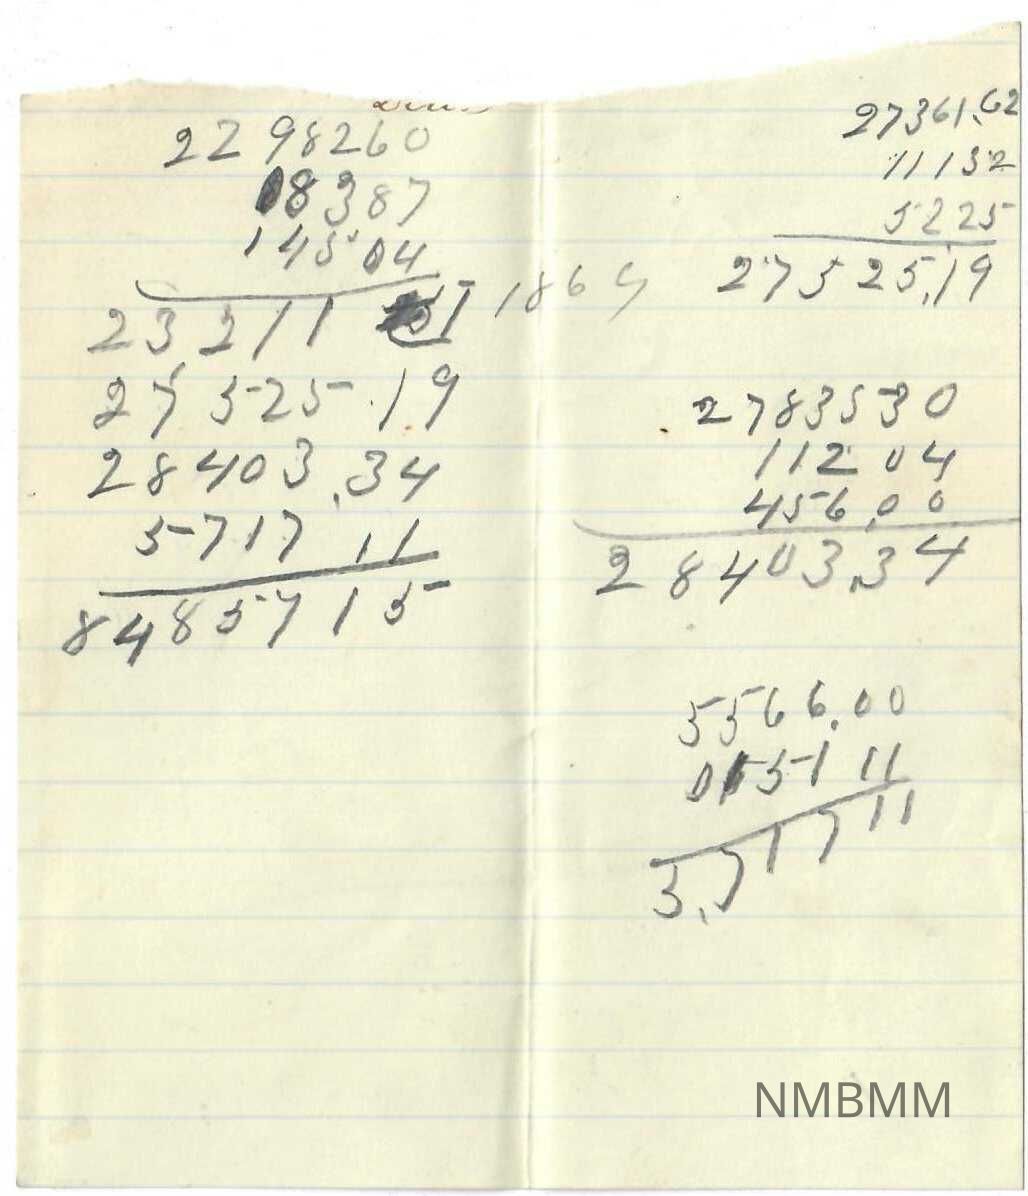 2298260
18387
145.04
23211 51 1864
27525.19
28403.34
5717 11
8485715
27361.62
11132
5225
27525.19
2783530
112 04
456.00
28403.34
5566.00
0151 11
5,717 11
NMBMM